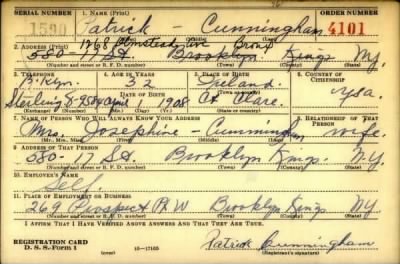 SERIAL NUMBER 1. NAME (Print) ORDER NUMBER
1590 Patrick - Cunningham 4101
(First) (Middle) (Last)
1468 Olmstead Ave Bronx
2. ADDRESS (Print)
580 - 17 St. Brooklyn Kings NY.
(Number and street or R. F. D. number) (Town) (County) (State)
3. TELEPHONE 4. AGE IN YEARS 5. PLACE OF BIRTH 6. COUNTRY OF CITIZENSHIP
B'klyn. 32 Ireland
DATE OF BIRTH
Sterling 8- April 1908 Ct Clare. USA
(Exchange) (Number) (Mo.) (Day) (Yr.) (Town or county) (State or country)
7. NAME OF PERSON WHO WILL ALWAYS KNOW YOUR ADDRESS RELATIONSHIP OF THAT PERSON
Mrs. Josephine - Cunningham wife.
(Mr., Mrs., Miss) (First) (Middle) (Last)
8. ADDRESS OF THAT PERSON
580 - 17 St. Brooklyn Kings. N.Y.
(Number and street or R. F. D. number) (Town) (County) (State)
9. EMPLOYER'S NAME
10. Self.
11. PLACE OF EMPLOYMENT OR BUSINESS
269 Prospect Pk W Brooklyn Kings NY
(Number and street or R. F. D. number) (Town) (County) (State)
I AFFIRM THAT I HAVE VERIFIED ABOVE ANSWERS AND THAT THEY ARE TRUE.
REGISTRATION CARD
D. S. S. Form 1 16-17105 Patrick Cunningham
(Registrant's signature)